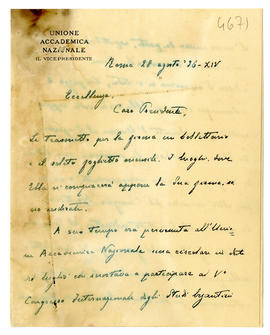 467)
UNIONE
ACCADEMICA
NAZIONALE
IL VICEPRESIDENTE
Roma 28 agosto '36-XIV
Eccellenza,
Caro Presidente,
Le trasmetto per la firma un bollettario
e il solito foglietto mensile. I luoghi, dove
Ella si compiacerà apporre la Sua firma, so
no indicati.
A suo tempo era pervenuta all'Unio
ne Accademica Nazionale una circolare in data
luglio che esortava a participare al V°
Congresso Internazionale degli Studi bizantini